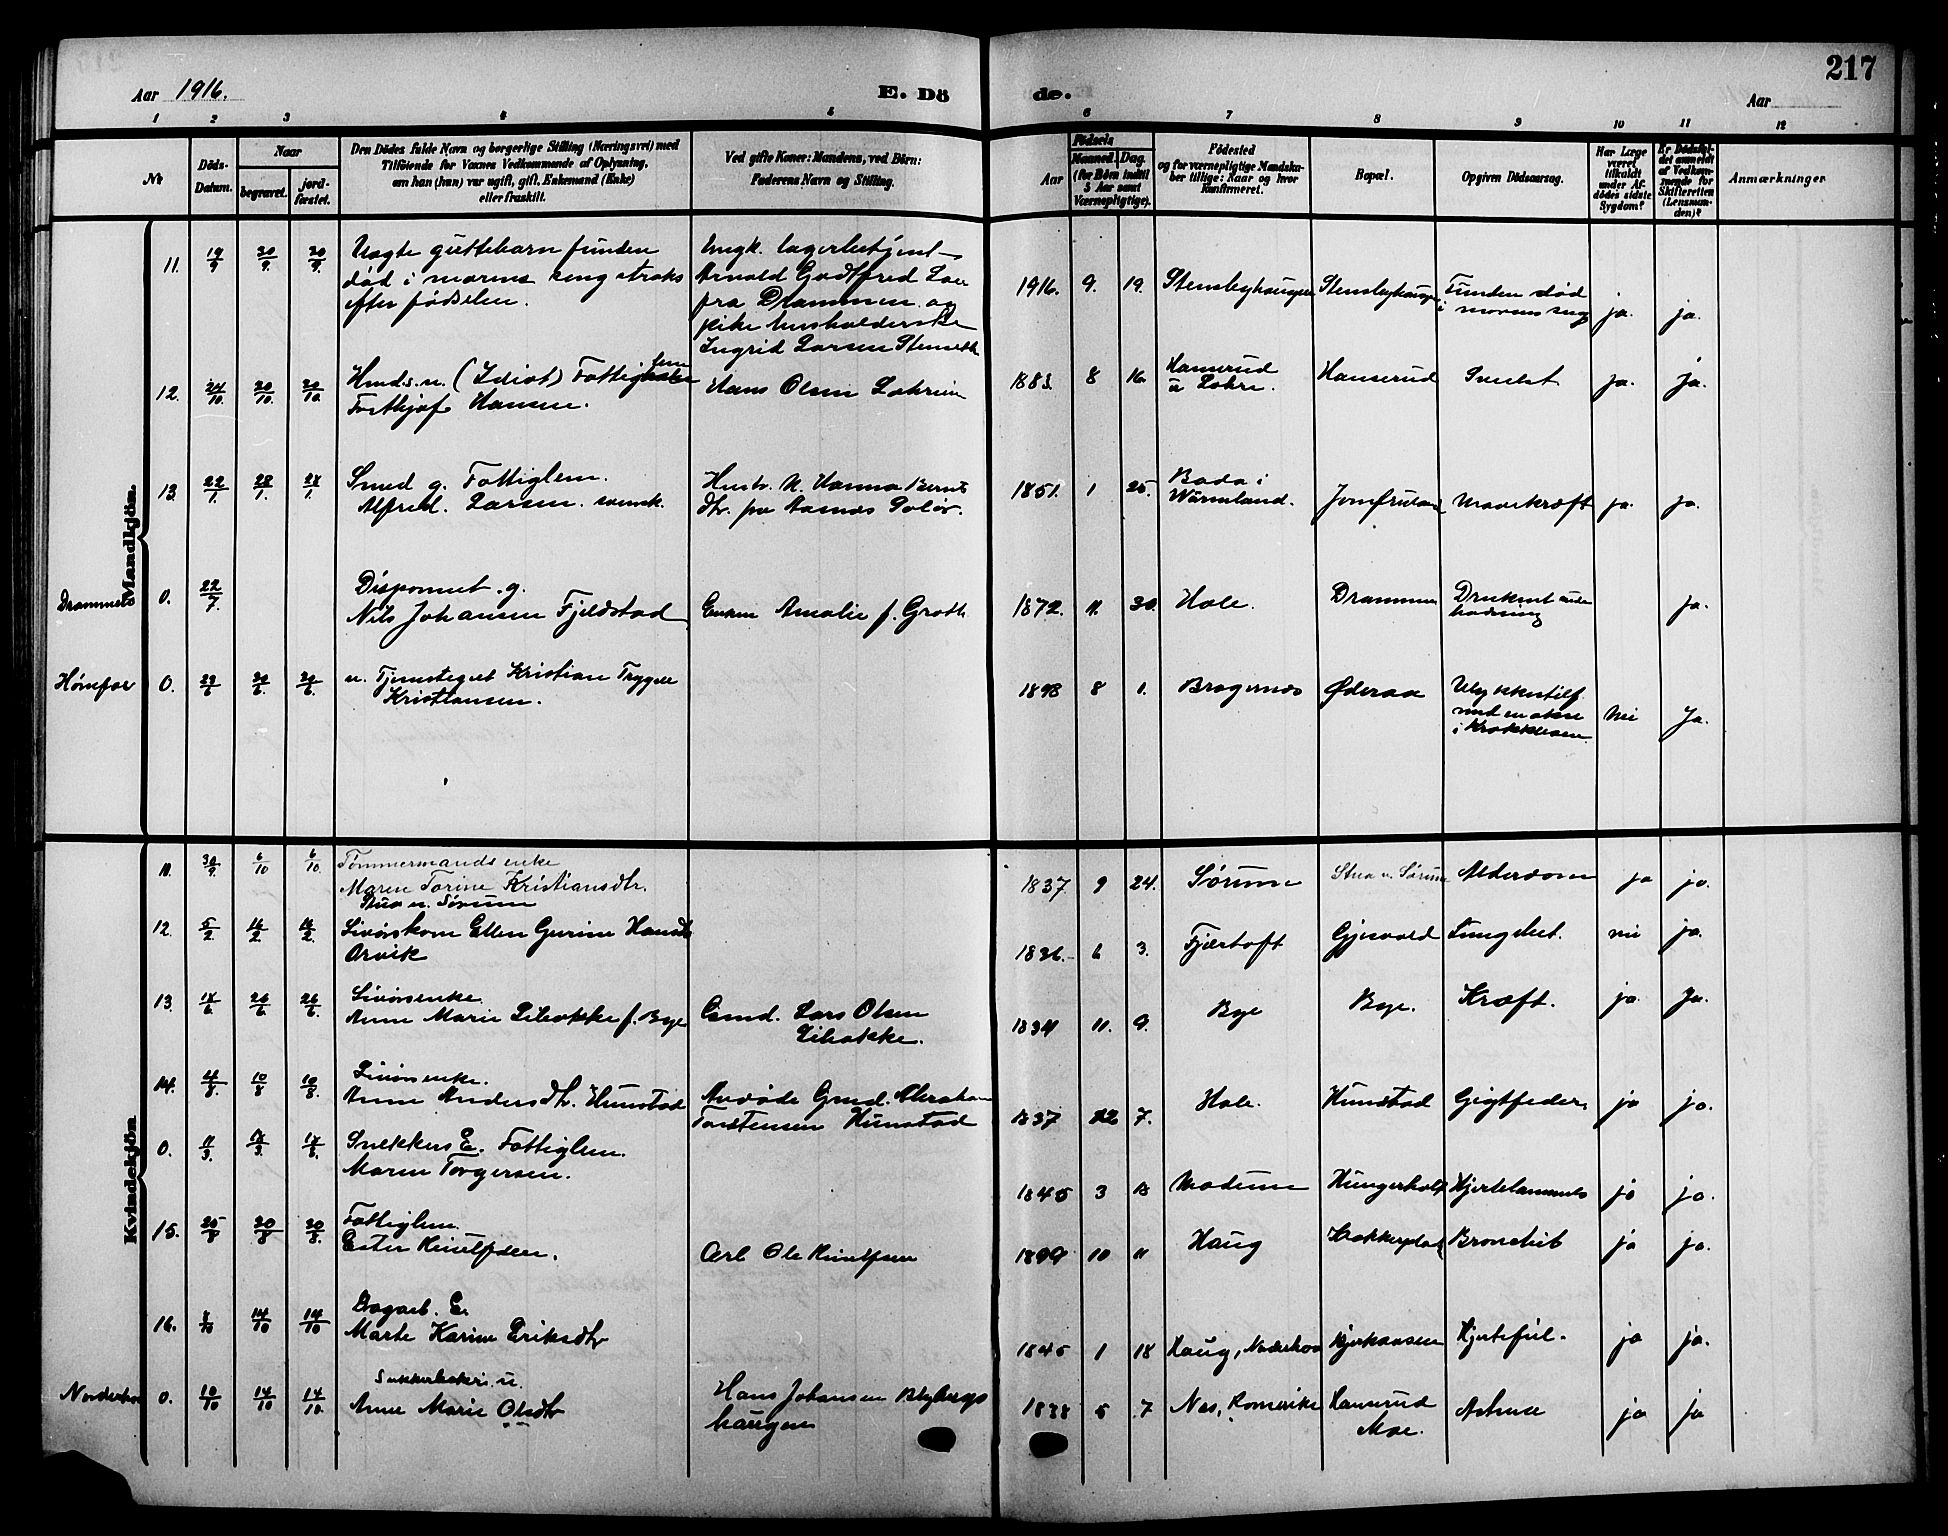 217
Aar 1916.
E. Dö
de.
Aar
1 2 3 4 5 6 7 8 9 10 11 12
No
Döds-
Datum.
Naar
begravet.
jord-
fæstet.
Den Dödes fulde Navn og borgerlige Stilling (Næringsvei) med
Tilföiende for Voxnes Vedkommende af Oplysning,
om han (hun) var ugift, gift, Enkemand (Enke)
eller fraskilt.
Ved gifte Koner: Mandens, ved Börn:
Faderens Navn og Stilling.
Födsels
Aar
Maaned. Dag.
(for Börn indtil
5 Aar samt
Værnepligtige).
Födested
og for værnepligtige Mandska-
ber tillige: Naar og hvor
konfirmeret.
Bopæl.
Opgiven Dödsaarsag.
Har Læge
været
tilkaldt
under Af-
dödes sidste
Sygdom?
Er Dödsfal-
det anmeldt
af Vedkom-
mende for
Skifteretten
(Lensman-
den)?
Anmærkninger
Mandkjön.
11. 19/9 30/9 30/9
Uægte guttebarn funden
død i morens seng straks
efter fødselen.
Ungk. lagerbetjent
Arnold Godtfred
fra Drammen og
pike husholderske
Ingrid Larsen
1916. 9. 19. Stensbyhaugen Funden død
i morens seng ja. ja.
12. 24/10 30/10 30/10
(Idiot) Fattiglem
Hansen.
Hans Olsen
1883. 8 16. Hanserud Hanserud ja. ja.
13. 22/1 28/1 28/1
Smed g. Fattiglem.
Alfred Larsen. svensk.
Hustr. Hanna Bernts
dtr. fra Aasnes Solør.
1851. 1 25. Boda i
Wärmland. Mavekræft ja. ja.
Drammens 0. 22/7
Disponent. g.
Nils Johansen Fjeldstad
Enken Amalie f. Groth
1872. 11. 30. Hole. Drammen Druknet under
badning ja.
Hønefos 0. 30/6 30/6
u. Tjenestegut Kristian Trygve
Kristiansen.
1898 8 1. Bragernes Øderaa Ulykkestilf.
med en okse
i Krokkleven. Nei Ja.
Kvindekjön
11. 30/9 6/10 6/10
Tømmermands enke
Maren Torine Kristiansdtr.
Stua u. Sørum
1837. 9 24. Sørum Stua u. Sørum Alderdom ja ja.
12. 5/2 16/2 16/2
Livørskone Ellen Gurine Hansdtr
Arvik
1836. 6 3. Fjærtoft Gjesvold Lungebet. nei ja.
13. 18/6 26/6 26/6
Livørsenke.
Anne Marie f. Bye
Gmd. Lars Olsen
1834 11. 9. Bye Bye. Kræft. ja. Ja.
14. 4/8 10/8 10/8
Livørsenke.
Anne Andersdtr. Hunstad
Avdøde Gmd. Abraham
Torstensen Hunstad
1837 12 7. Hole. Hunstad Gigtfeber ja ja.
0. 11/3
Snekkers E. Fattiglem.
Maren Torgersen.
1845 3 Modum Hungerholt Hjertelammels ja ja.
15. 25/8 30/8 30/8
Fattiglem.
Ester Knutsen.
Carl Ole Knutsen
1899 10 11 Haug Bronchit ja ja.
16. 8/10 14/10 14/10
Dagarb. E.
Marte Karine Eriksdtr
1845 1 18 Haug, Norderhov Hjertefeil. ja ja.
Norderhov 0. 10/10 14/10 14/10
u.
Anne Marie Olsdtr
Hans Johansen
haugen
1838 5 7 Nes, Romerike Hanserud
Moe. ja ja